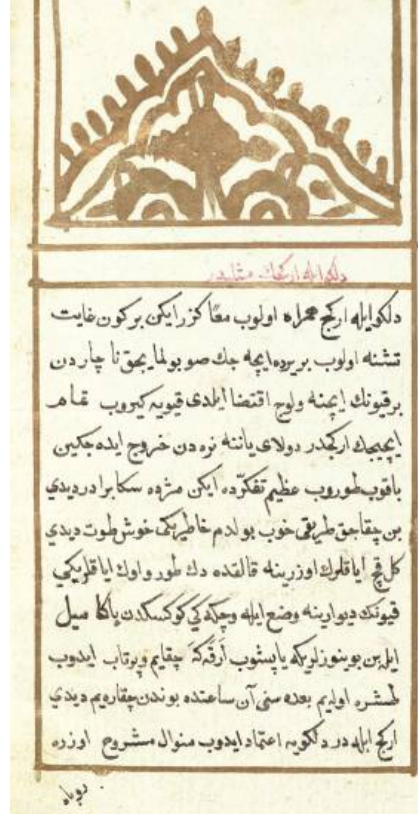 دلكو ايله اركجك مثليدر
دلكو ايله اركج همراه اولوب معًا كزر ايكن بركون غايت
تشنه اولوب بر يرده ايچه جك صو بولمايجق ناچاردن
بر قيونك ايچنه ولوج اقتضا ايلدى قيويه كيروب تمام
ايچيجك اركجدر دولاى ياننه نره دن خروج ايده جكين
باقوب طوروب عظيم تفكرده ايكن مژده سكا برادر ديدى
بن چقاجق طريقى خوب بولدم خاطريكى خوش طوت ديدى
كل قچ اياقلرك اوزرينه قالقده دك طور و اوك اياقلريكى
قيونك ديوارينه وضع ايله و چكه كى كوكسكدن ياكا ميل
ايله بن بوينوزلركه ياپشوب ارقه كه چقايم و پرتاب ايدوب
طشره اوليم بعده سنى آن ساعتده بوندن چقاره يم ديدى
اركج ابله در دلكويه اعتماد ايدوب منوال مشروح اوزره
روباه